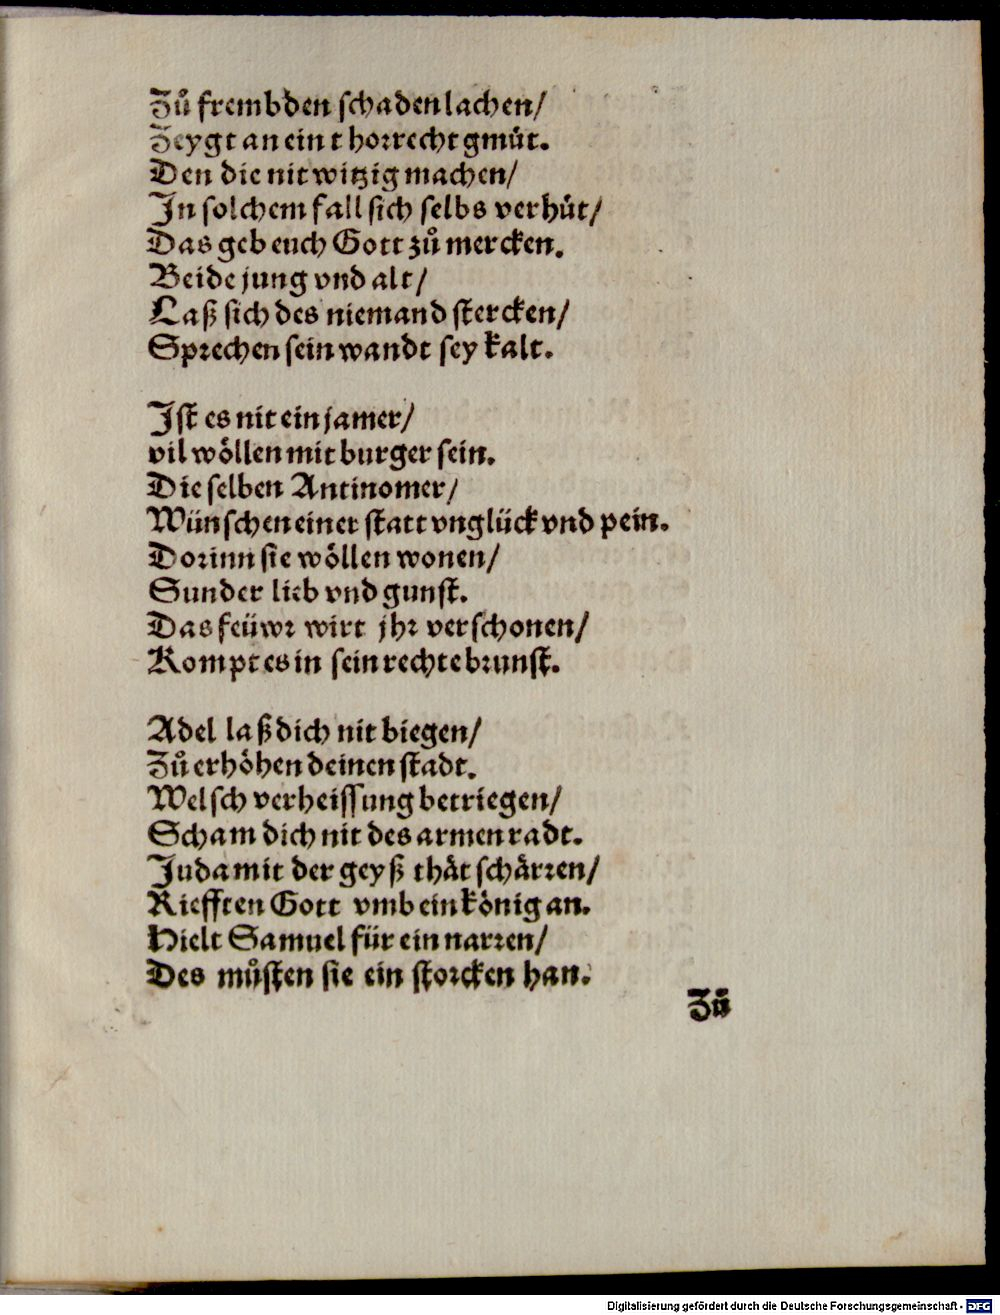 Zů frembden schaden lachen/
Zeygt an ein thorrecht gmůt.
Den die nit witzig machen/
In solchem fall sich selbs verhůt/
Das geb euch Gott zů mercken.
Beide jung vnd alt/
Laß sich des niemand stercken/
Sprechen sein wandt sey kalt.

Ist es nit ein jamer/
vil wöllen mit burger sein.
Die selben Antinomer/
Wünschen einer statt vnglück vnd pein.
Dorinn sie wöllen wonen/
Sunder lieb vnd gunst.
Das feüwr wirt jhr verschonen/
Kompt es in sein rechte brunst.

Adel laß dich nit biegen/
Zů erhöhen deinen stadt.
Welsch verheissung betriegen/
Scham dich nit des armen radt.
Juda mit der geyß thåt schårren/
Riefften Gott vmb ein könig an.
Hielt Samuel für ein narren/
Des můsten sie ein storcken han.
Zů
Digitalisierung gefördert durch die Deutsche Forschungsgemeinschaft - DFG